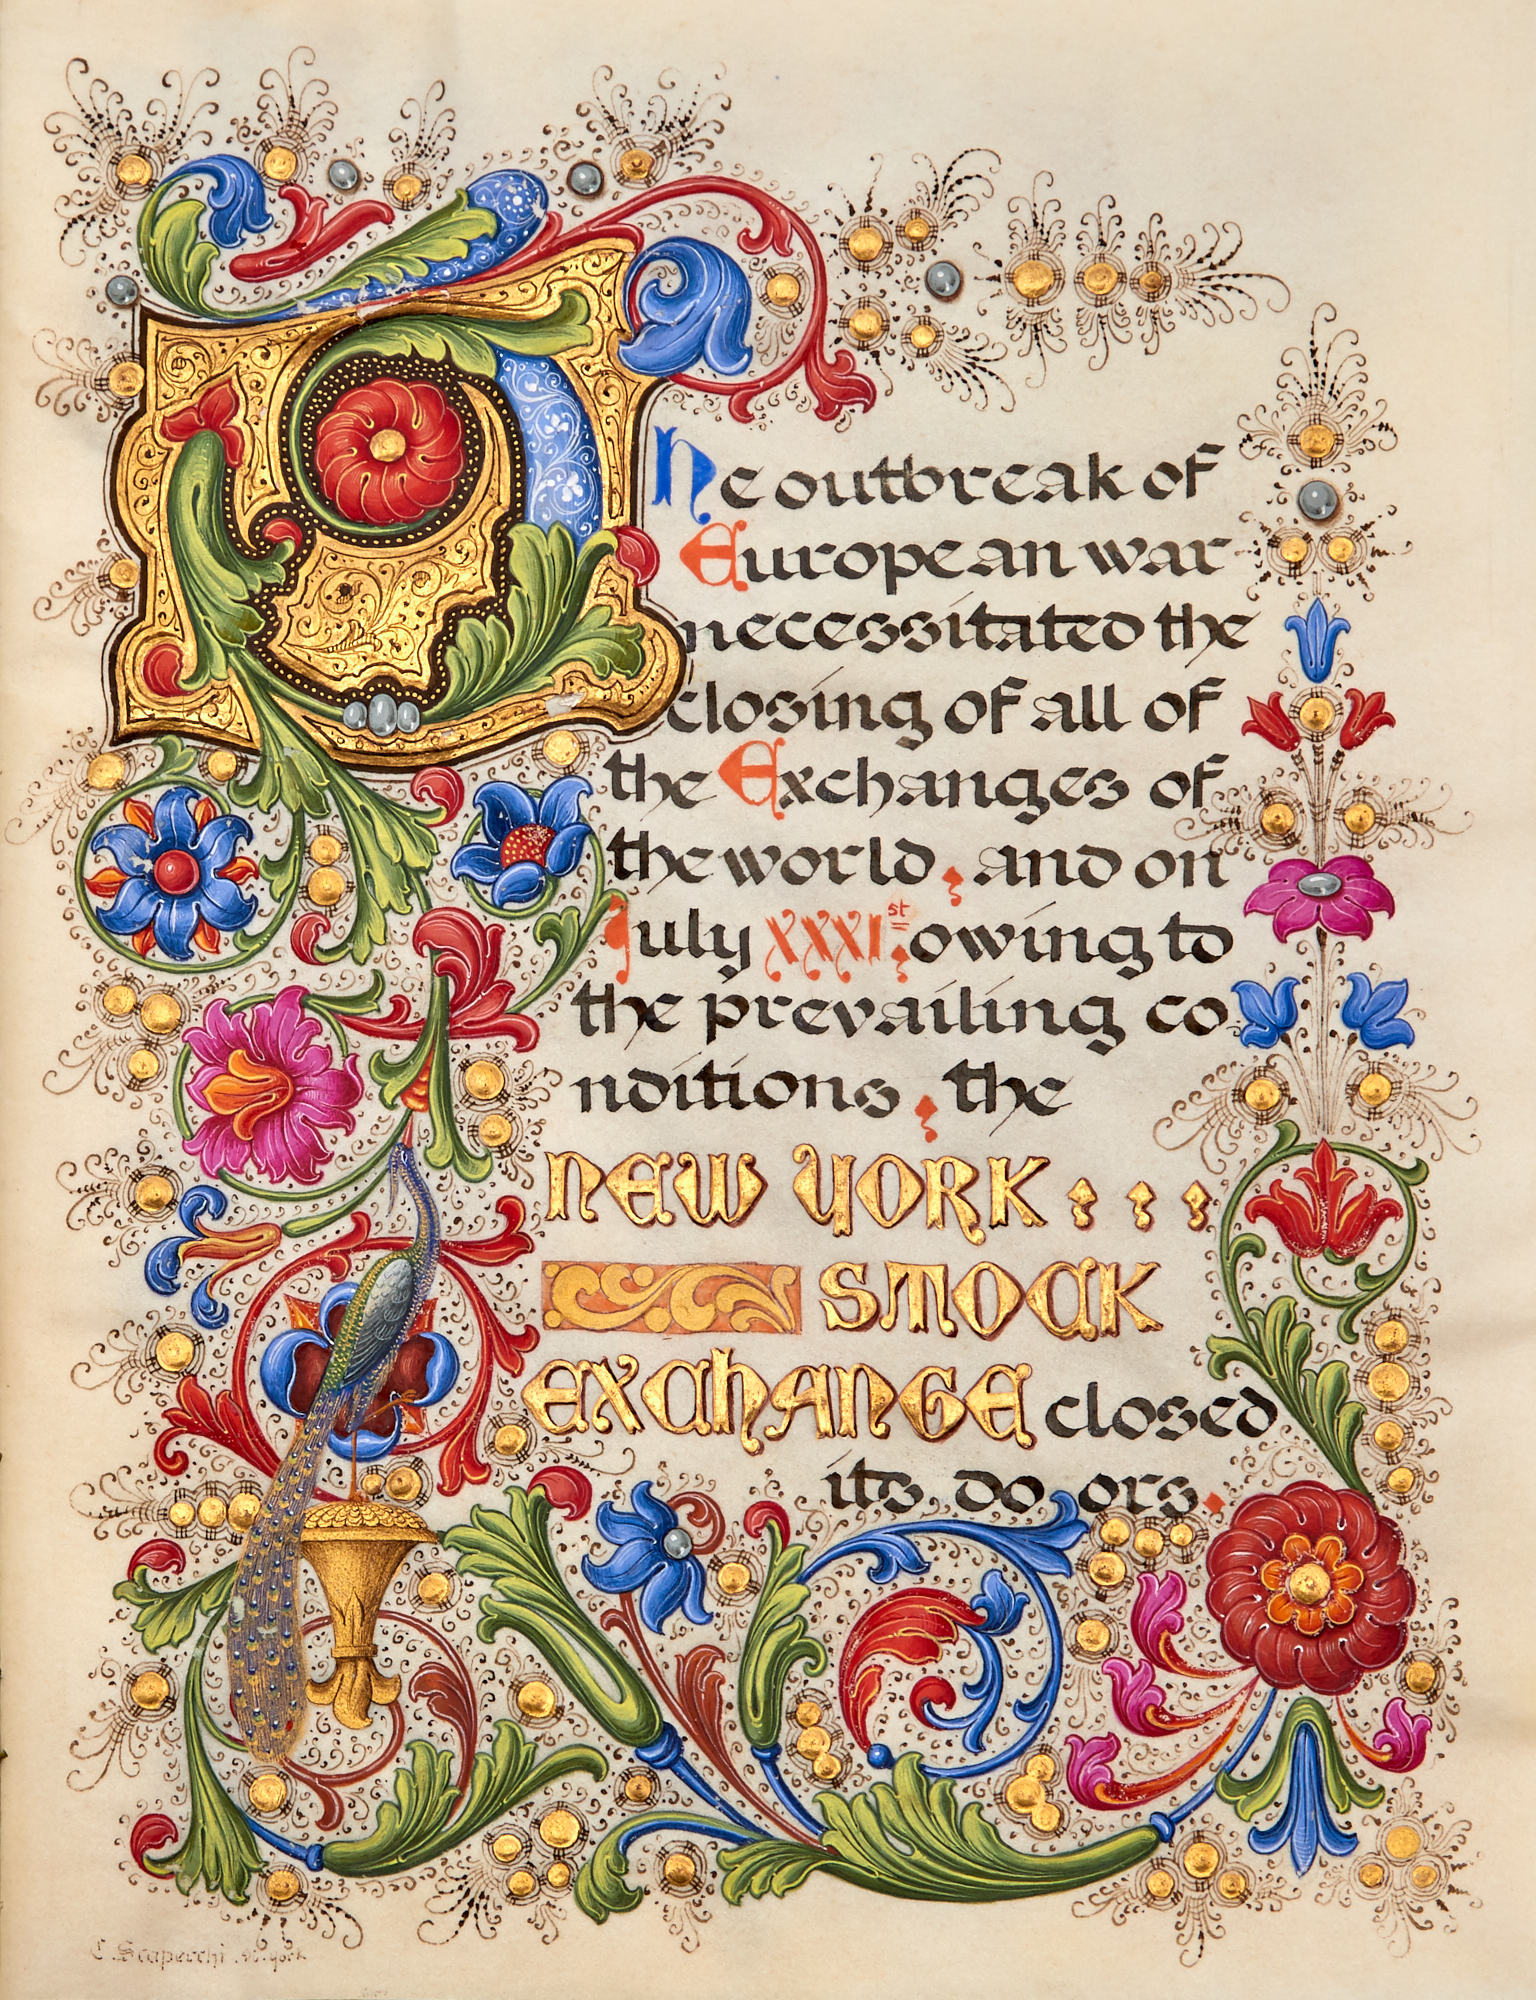 The outbreak of
European war
necessitated the
closing of all of
the Exchanges of
the world, and on
July XXXI st, owing to
the prevailing co
nditions, the
NEW YORK
STOCK
EXCHANGE closed
its do ors.
C. Scapecchi N. York